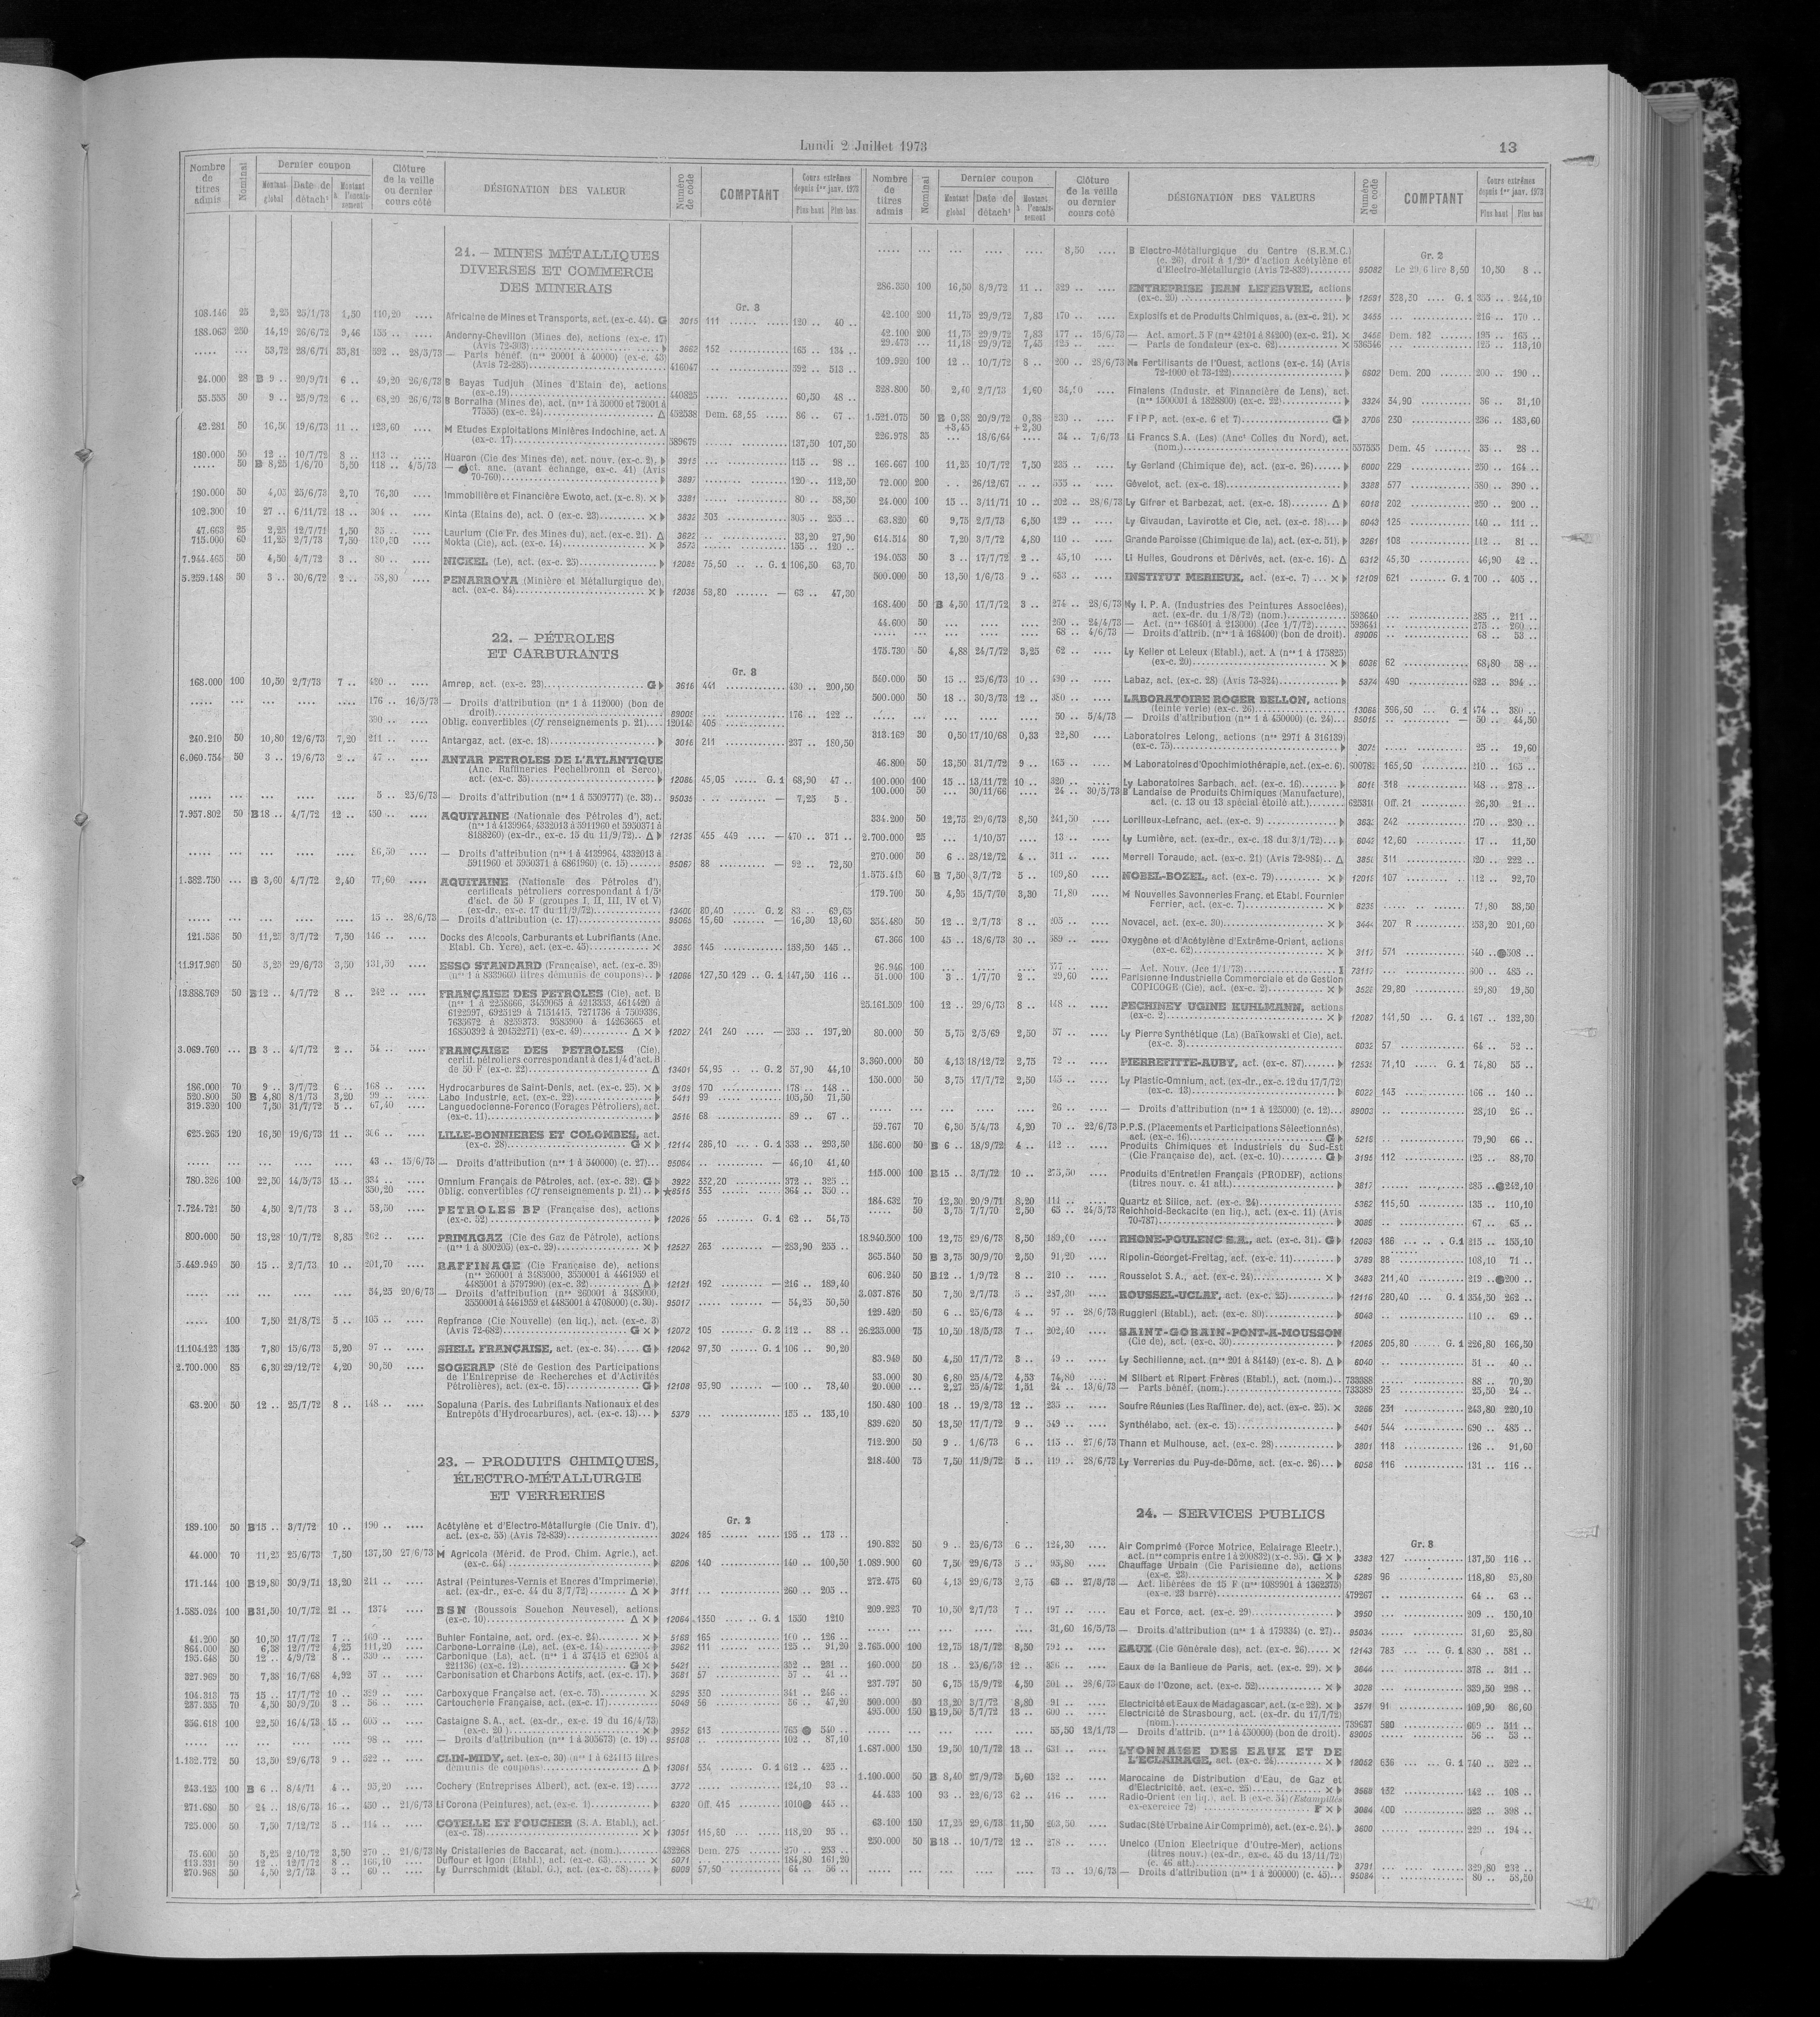 Lundi 2 Juillet 1973
13
Nombre de titres admis
Nominal
Dernier coupon
Montant global
Date de détach¹
Montant à l'encaissement
Clôture de la veille ou dernier cours coté
DÉSIGNATION DES VALEUR
Numéro de code
COMPTANT
Cours extrêmes depuis 1er janv. 1973
Plus haut
Plus bas
21. — MINES MÉTALLIQUES
DIVERSES ET COMMERCE
DES MINERAIS
Gr. 3
108.146 25 2,25 25/1/73 1,50 110,20 .... Africaine de Mines et Transports, act. (ex-c. 44). G 3015 111 120 .. 40 ..
188.063 250 14,19 26/6/72 9,46 155 .. .... Anderny-Chevillon (Mines de), actions (ex-c. 17)
(Avis 72-303) 3662 152 165 .. 134 ..
..... ... 53,72 28/6/71 35,81 592 .. 28/3/73 — Paris bénéf. (nos 20001 à 40000) (ex-c. 43)
(Avis 72-283) 416047 592 .. 513 ..
24.000 28 B 9 .. 20/9/71 6 .. 49,20 26/6/73 B Bayas Tudjuh (Mines d'Etain de), actions
(ex-c.19) 440825 60,50 48 ..
55.555 50 9 .. 25/9/72 6 .. 68,20 26/6/73 B Borralha (Mines de), act. (nos 1 à 50000 et 72001 à
77555) (ex-c. 24) Δ 452538 Dem. 68,55 86 .. 67 ..
42.281 50 16,50 19/6/73 11 .. 123,60 .... M Etudes Exploitations Minières Indochine, act. A
(ex-c. 17) 589675 137,50 107,50
180.000 50 12 .. 10/7/72 8 .. 113 .. .... Huaron (Cie des Mines de), act. nouv. (ex-c. 2). 3915 115 .. 98 ..
..... 50 B 8,25 1/6/70 5,50 118 .. 4/5/73 — Act. anc. (avant échange, ex-c. 41) (Avis
70-760) 3897 120 .. 112,50
180.000 50 4,05 25/6/73 2,70 76,30 .... Immobilière et Financière Ewoto, act. (x-c. 8). × 3381 80 .. 58,50
102.300 10 27 .. 6/11/72 18 .. 304 .. .... Kinta (Etains de), act. O (ex-c. 23) × 3832 303 305 .. 255 ..
47.663 25 2,25 12/7/71 1,50 35 .. .... Laurium (Cie Fr. des Mines du), act. (ex-c. 21). Δ 3622 33,20 27,90
715.000 60 11,25 2/7/73 7,50 .... Mokta (Cie), act. (ex-c. 14) × 3573 155 .. 120 ..
7.944.465 50 4,50 4/7/72 3 .. 80 .. .... NICKEL (Le), act. (ex-c. 25) 12085 75,50 G. 1 106,50 63,70
5.259.148 50 3 .. 30/6/72 2 .. 58,80 .... PENARROYA (Minière et Métallurgique de),
act. (ex-c. 84) × 12038 58,80 — 63 .. 47,30
22. — PÉTROLES
ET CARBURANTS
Gr. 8
168.000 100 10,50 2/7/73 7 .. 420 .. .... Amrep, act. (ex-c. 23) G 3616 441 430 .. 200,50
..... ... ... .... .... 176 .. 16/5/73 — Droits d'attribution (no 1 à 112000) (bon de
droit) 89005 176 .. 122 ..
390 .. .... Oblig. convertibles (Cf renseignements p. 21) 120145 405
240.210 50 10,80 12/6/73 7,20 211 .. .... Antargaz, act. (ex-c. 18) 3016 211 237 .. 180,50
6.060.754 50 3 .. 19/6/73 2 .. 47 .. .... ANTAR PETROLES DE L'ATLANTIQUE
(Anc. Raffineries Pechelbronn et Serco),
act. (ex-c. 35) 12086 45,05 G. 1 68,90 47 ..
..... ... ... .... .... 5 .. 25/6/73 — Droits d'attribution (nos 1 à 5509777) (c. 33) 95035 — 7,25 5 ..
7.957.802 50 B 18 .. 4/7/72 12 .. 450 .. .... AQUITAINE (Nationale des Pétroles d'), act.
(nos 1 à 4139964, 4332013 à 5911960 et 5950371 à
8188260) (ex-dr., ex-c. 15 du 11/9/72) Δ 12135 455 449 — 470 .. 371 ..
..... ... ... .... .... 86,50 — Droits d'attribution (nos 1 à 4139964, 4332013 à
5911960 et 5950371 à 6861960) (c. 15) 95067 88 — 92 .. 72,50
1.382.750 ... B 3,60 4/7/72 2,40 77,60 .... AQUITAINE (Nationale des Pétroles d'),
certificats pétroliers correspondant à 1/5e
d'act. de 50 F (groupes I, II, III, IV et V)
(ex-dr., ex-c. 17 du 11/9/72) 13400 80,40 G. 2 83 .. 69,65
..... ... ... .... .... 15 .. 28/6/73 — Droits d'attribution (c. 17) 95065 15,60 — 16,30 13,60
121.536 50 11,25 3/7/72 7,50 146 .. .... Docks des Alcools, Carburants et Lubrifiants (Anc.
Etabl. Ch. Ycre), act. (ex-c. 45) × 3650 145 158,50 145 ..
11.917.960 50 5,25 29/6/73 3,50 131,50 .... ESSO STANDARD (Française), act. (ex-c. 39)
(nos 1 à 8339660 titres démunis de coupons) 12066 127,50 129 G. 1 147,50 116 ..
13.888.769 50 B 12 .. 4/7/72 8 .. 242 .. .... FRANÇAISE DES PETROLES (Cie), act. B
(nos 1 à 2258666, 3459065 à 4213353, 4614420 à
6122997, 6925129 à 7151415, 7271736 à 7509336,
7635672 à 8259373, 9585900 à 14263665 et
16850392 à 20452271) (ex-c. 49) Δ × 12027 241 240 — 253 .. 197,20
3.069.760 ... B 3 .. 4/7/72 2 .. 54 .. .... FRANÇAISE DES PETROLES (Cie),
certif. pétroliers correspondant à des 1/4 d'act. B
de 50 F (ex-c. 22) Δ 13401 54,95 G. 2 57,90 44,10
186.000 70 9 .. 3/7/72 6 .. 168 .. .... Hydrocarbures de Saint-Denis, act. (ex-c. 25). × 3108 170 178 .. 148 ..
520.800 50 B 4,80 8/1/73 3,20 99 .. .... Labo Industrie, act. (ex-c. 22) 5411 99 105,50 71,50
319.320 100 7,50 31/7/72 5 .. 67,40 .... Languedocienne-Forenco (Forages Pétroliers), act.
(ex-c. 11) 3516 68 89 .. 67 ..
625.265 120 16,50 19/6/73 11 .. 306 .. .... LILLE-BONNIERES ET COLOMBES, act.
(ex-c. 28) G × 12114 286,10 G. 1 333 .. 293,50
..... ... ... .... .... 43 .. 15/6/73 — Droits d'attribution (nos 1 à 540000) (c. 27) 95064 — 46,10 41,40
780.326 100 22,50 14/5/73 15 .. 334 .. .... Omnium Français de Pétroles, act. (ex-c. 32). G 3922 332,20 372 .. 325 ..
350,20 .... Oblig. convertibles (Cf renseignements p. 21) ★6515 353 364 .. 350 ..
7.724.721 50 4,50 2/7/73 3 .. 58,50 .... PETROLES BP (Française des), actions
(ex-c. 52) 12026 55 G. 1 62 .. 54,75
800.000 50 13,28 10/7/72 8,85 262 .. .... PRIMAGAZ (Cie des Gaz de Pétrole), actions
(nos 1 à 800205) (ex-c. 29) × 12527 263 — 283,90 255 ..
5.449.949 50 15 .. 2/7/73 10 .. 201,70 RAFFINAGE (Cie Française de), actions
(nos 260001 à 3485000, 3550001 à 4461959 et
4485001 à 5797990) (ex-c. 32) Δ 12121 192 — 216 .. 189,40
..... ... ... .... .... 54,25 20/6/73 — Droits d'attribution (nos 260001 à 3485000,
3550001 à 4461959 et 4485001 à 4708000) (c. 30) 95017 — 54,25 50,50
..... 100 7,50 21/8/72 5 .. 105 .. .... Repfrance (Cie Nouvelle) (en liq.), act. (ex-c. 3)
(Avis 72-682) G × 12072 105 G. 2 112 .. 88 ..
11.104.123 135 7,80 15/6/73 5,20 97 .. .... SHELL FRANÇAISE, act. (ex-c. 34) G 12042 97,50 G. 1 106 .. 90,20
2.700.000 85 6,30 29/12/72 4,20 90,50 .... SOGERAP (Sté de Gestion des Participations
de l'Entreprise de Recherches et d'Activités
Pétrolières), act. (ex-c. 15) G 12108 93,90 — 100 .. 78,40
63.200 50 12 .. 25/7/72 8 .. 148 .. .... Sopaluna (Paris. des Lubrifiants Nationaux et des
Entrepôts d'Hydrocarbures), act. (ex-c. 13) 5379 155 .. 135,10
23. — PRODUITS CHIMIQUES,
ÉLECTRO-MÉTALLURGIE
ET VERRERIES
Gr. 2
189.100 50 B 15 .. 3/7/72 10 .. 190 .. .... Acétylène et d'Electro-Métallurgie (Cie Univ. d'),
act. (ex-c. 55) (Avis 72-839) 3024 185 195 .. 173 ..
44.000 70 11,25 25/6/73 7,50 137,50 27/6/73 M Agricola (Mérid. de Prod. Chim. Agric.), act.
(ex-c. 64) 6206 140 140 .. 100,50
171.144 100 B 19,80 30/9/71 13,20 211 .. .... Astral (Peintures-Vernis et Encres d'Imprimerie),
act. (ex-dr., ex-c. 44 du 3/7/72) Δ × 3111 260 .. 205 ..
1.585.024 100 B 31,50 10/7/72 21 .. 1374 .... BSN (Boussois Souchon Neuvesel), actions
(ex-c. 10) Δ × 12064 1350 G. 1 1550 1210
41.200 50 10,50 17/7/72 7 .. 160 .. .... Buhler Fontaine, act. ord. (ex-c. 24) × 5169 165 160 .. 126 ..
864.000 50 6,38 12/7/72 4,25 111,20 .... Carbone-Lorraine (Le), act. (ex-c. 14) 3962 111 125 .. 91,20
195.648 50 12 .. 4/9/72 8 .. 330 .. .... Carbonique (La), act. (nos 1 à 37415 et 62904 à
221136) (ex-c. 12) G × 5421 352 .. 231 ..
327.969 50 7,38 16/7/68 4,92 57 .. .... Carbonisation et Charbons Actifs, act. (ex-c. 17). 3681 57 57 .. 41 ..
104.313 75 15 .. 17/7/72 10 .. 329 .. .... Carboxyque Française act. (ex-c. 75) × 5295 330 341 .. 246 ..
237.355 70 4,50 30/9/70 3 .. 56 .. .... Cartoucherie Française, act. (ex-c. 17) 5049 56 56 .. 47,20
356.618 100 22,50 16/4/73 15 .. 605 .. .... Castaigne S.A., act. (ex-dr., ex-c. 19 du 16/4/73)
(ex-c. 20) × 3952 613 765 540 ..
..... ... ... .... .... 98 .. .... — Droits d'attribution (nos 1 à 305673) (c. 19) 95108 102 .. 87,10
1.132.772 50 13,50 29/6/73 9 .. 522 .. .... CLIN-MIDY, act. (ex-c. 30) (nos 1 à 624115 titres
démunis de coupons) Δ 13061 534 G. 1 612 .. 425 ..
243.125 100 B 6 .. 8/4/71 4 .. 95,20 .... Cochery (Entreprises Albert), act. (ex-c. 12) 3772 124,10 93 ..
271.680 50 24 .. 18/6/73 16 .. 450 .. 21/6/73 Li Corona (Peintures), act. (ex-c. 1) 6320 Off. 415 1010 445 ..
725.000 50 7,50 7/12/72 5 .. 114 .. .... COTELLE ET FOUCHER (S. A. Etabl.), act.
(ex-c. 78) × 13051 115,80 118,20 95 ..
75.600 50 5,25 2/10/72 3,50 270 .. 21/6/73 Ny Cristalleries de Baccarat, act. (nom.) 432268 Dem. 275 270 .. 253 ..
113.331 50 12 .. 12/7/72 8 .. 166,10 Duffour et Igon (Etabl.), act. (ex-c. 63) × 5071 184,80 161,20
270.968 50 4,50 2/7/73 3 .. 60 .. .... Ly Durrschmidt (Etabl. G.), act. (ex-c. 38) 6009 57,50 64 .. 56 ..
Nombre de titres admis
Nominal
Dernier coupon
Montant global
Date de détach¹
Montant à l'encaissement
Clôture de la veille ou dernier cours coté
DÉSIGNATION DES VALEURS
Numéro de code
COMPTANT
Cours extrêmes depuis 1er janv. 1973
Plus haut
Plus bas
Gr. 2
..... ... ... .... .... 8,50 .... B Electro-Métallurgique du Centre (S.E.M.C.)
(c. 26), droit à 1/20e d'action Acétylène et
d'Electro-Métallurgie (Avis 72-839) 95082 Le 29/6 lire 8,50 10,50 8 ..
286.350 100 16,50 8/9/72 11 .. 329 .. .... ENTREPRISE JEAN LEFEBVRE, actions
(ex-c. 20) 12591 328,50 G. 1 355 .. 244,10
42.100 200 11,75 29/9/72 7,83 170 .. .... Explosifs et de Produits Chimiques, a. (ex-c. 21). × 3455 216 .. 170 ..
42.100 200 11,75 29/9/72 7,83 177 .. 15/6/73 — Act. amort. 5 F (nos 42101 à 84200) (ex-c. 21). × 3456 Dem. 182 195 .. 165 ..
29.473 ... 11,18 29/9/72 7,45 125 .. .... — Parts de fondateur (ex-c. 62) × 536346 125 .. 113,10
109.920 100 12 .. 10/7/72 8 .. 200 .. 28/6/73 Ns Fertilisants de l'Ouest, actions (ex-c. 14) (Avis
72-1000 et 73-122) 6802 Dem. 200 200 .. 190 ..
328.800 50 2,40 2/7/73 1,60 34,50 .... Finalens (Industr. et Financière de Lens), act.
(nos 1500001 à 1828800) (ex-c. 22) 3324 34,90 36 .. 31,10
1.521.075 50 B 0,38 +3,45 20/9/72 0,38 +2,30 230 .. .... FIPP, act. (ex-c. 6 et 7) G 3706 230 236 .. 183,60
226.978 35 ... 18/6/64 .... 34 .. 7/6/73 Li Francs S.A. (Les) (Anct Colles du Nord), act.
(nom.) 557555 Dem. 45 35 .. 28 ..
166.667 100 11,25 10/7/72 7,50 235 .. .... Ly Gerland (Chimique de), act. (ex-c. 26) 6000 229 250 .. 164 ..
72.000 200 .. 26/12/67 .. .. 555 .. .... Gévelot, act. (ex-c. 18) 3388 577 580 .. 390 ..
24.000 100 15 .. 3/11/71 10 .. 202 .. 28/6/73 Ly Gifrer et Barbezat, act. (ex-c. 18) Δ 6018 202 250 .. 200 ..
63.820 60 9,75 2/7/73 6,50 129 .. .... Ly Givaudan, Lavirotte et Cie, act. (ex-c. 18) 6043 125 140 .. 111 ..
614.514 80 7,20 3/7/72 4,80 110 .. .... Grande Paroisse (Chimique de la), act. (ex-c. 51). 3261 108 112 .. 81 ..
194.053 50 3 .. 17/7/72 2 .. 45,10 .... Li Huiles, Goudrons et Dérivés, act. (ex-c. 16). Δ 6312 45,30 46,90 42 ..
500.000 50 13,50 1/6/73 9 .. 633 .. .... INSTITUT MERIEUX, act. (ex-c. 7) × 12109 621 G. 1 700 .. 405 ..
168.400 50 B 4,50 17/7/72 3 .. 274 .. 28/6/73 Ny I. P. A. (Industries des Peintures Associées),
act. (ex-dr. du 1/8/72) (nom.) 593640 285 .. 211 ..
44.600 50 ... .... .... 260 .. 24/4/73 — Act. (nos 168401 à 213000) (Jce 1/7/72) 593641 275 .. 260 ..
..... ... ... .... .... 68 .. 4/6/73 — Droits d'attrib. (nos 1 à 168400) (bon de droit). 89006 68 .. 53 ..
175.730 50 4,88 24/7/72 3,25 62 .. .... Ly Keller et Leleux (Etabl.), act. A (nos 1 à 175825)
(ex-c. 20) × 6036 62 68,80 58 ..
540.000 50 15 .. 25/6/73 10 .. 490 .. .... Labaz, act. (ex-c. 28) (Avis 73-324) 5374 490 623 .. 394 ..
500.000 50 18 .. 30/3/73 12 .. 380 .. .... LABORATOIRE ROGER BELLON, actions
(teinte verte) (ex-c. 26) 13066 396,50 G. 1 474 .. 380 ..
..... ... ... .... .... 50 .. 5/4/73 — Droits d'attribution (nos 1 à 450000) (c. 24) 95015 — 50 .. 44,50
313.169 30 0,50 17/10/68 0,33 22,80 Laboratoires Lelong, actions (nos 2971 à 316139)
(ex-c. 75) 3075 25 .. 19,60
46.800 50 13,50 31/7/72 9 .. 165 .. .... M Laboratoires d'Opochimiothérapie, act. (ex-c. 6). 600782 165,50 210 .. 165 ..
100.000 100 15 .. 13/11/72 10 .. 320 .. .... Ly Laboratoires Sarbach, act. (ex-c. 16) 6016 318 278 ..
100.000 50 ... 30/11/66 .... 24 .. 30/5/73 B Landaise de Produits Chimiques (Manufacture),
act. (c. 13 ou 13 spécial étoilé att.) 625310 Off. 21 26,30 21 ..
334.200 50 12,75 29/6/73 8,50 241,50 .... Lorilleux-Lefranc, act. (ex-c. 9) 242 230 ..
2.700.000 25 ... 1/10/57 13 .. .... Ly Lumière, act. (ex-dr., ex-c. 18 du 3/1/72) 6047 12,60 17 .. 11,50
270.000 50 6 .. 28/12/72 4 .. 311 .. .... Merrell Toraude, act. (ex-c. 21) (Avis 72-984) Δ 3850 311 320 .. 222 ..
1.575.415 60 B 7,50 3/7/72 5 .. 109,80 .... NOBEL-BOZEL, act. (ex-c. 79) × 12015 107 112 .. 92,70
179.700 50 4,95 15/7/70 3,30 71,80 .... M Nouvelles Savonneries Franç. et Etabl. Fournier
Ferrier, act. (ex-c. 7) × 6235 71,80 38,50
354.480 50 12 .. 2/7/73 8 .. 205 .. .... Novacel, act. (ex-c. 30) × 3444 207 R 253,20 201,60
67.366 100 45 .. 18/6/73 30 .. 589 .. .... Oxygène et d'Acétylène d'Extrême-Orient, actions
(ex-c. 62) × 3117 571 508 ..
26.946 100 ... .... .... 577 .. .... — Act. Nouv. (Jce 1/1/73) 73117 600 .. 485 ..
51.000 100 3 .. 1/7/70 2 .. 29,60 .... Parisienne Industrielle Commerciale et de Gestion
COPICOGE (Cie), act. (ex-c. 2) 3526 29,80 29,80 19,50
25.161.509 100 12 .. 29/6/73 8 .. 148 .. .... PECHINEY UGINE KUHLMANN, actions
(ex-c. 2) × 12087 141,50 G. 1 167 .. 132,30
80.000 50 5,75 2/5/69 2,50 57 .. .... Ly Pierre Synthétique (La) (Baïkowski et Cie), act.
(ex-c. 3) 6032 57 64 .. 52 ..
3.360.000 50 4,13 18/12/72 2,75 72 .. .... PIERREFITTE-AUBY, act. (ex-c. 87) 12535 71,10 G. 1 74,80 55 ..
150.000 50 3,75 17/7/72 2,50 145 .. .... Ly Plastic-Omnium, act. (ex-dr., ex-c. 12 du 17/7/72)
(ex-c. 13) 6022 143 166 .. 140 ..
..... ... ... .... .... 26 .. .... — Droits d'attribution (nos 1 à 125000) (c. 12) 89003 28,10 26 ..
59.767 70 6,30 5/4/73 4,20 70 .. 22/6/73 P.P.S. (Placements et Participations Sélectionnés),
act. (ex-c. 16) G 5215 79,90 66 ..
156.600 50 B 6 .. 18/9/72 4 .. 112 .. .... Produits Chimiques et Industriels du Sud-Est
(Cie Française de), act. (ex-c. 10) G 3195 112 125 .. 88,70
115.000 100 B 15 .. 3/7/72 10 .. 275,50 .... Produits d'Entretien Français (PRODEF), actions
(titres nouv. c. 41 att.) 3817 285 .. 242,10
184.632 70 12,30 20/9/71 8,20 111 .. .... Quartz et Silice, act. (ex-c. 24) 5362 115,50 135 .. 110,10
..... 50 3,75 7/7/70 2,50 65 .. 24/5/73 Reichhold-Beckacite (en liq.), act. (ex-c. 11) (Avis
70-787) 3086 67 .. 65 ..
18.940.500 100 12,75 29/6/73 8,50 189,60 .... RHONE-POULENC S.A., act. (ex-c. 31). G 12063 186 G.1 215 .. 155,10
365.540 50 B 3,75 30/9/70 2,50 91,20 .... Ripolin-Georget-Freitag, act. (ex-c. 11) 3789 88 108,10 71 ..
606.240 50 B 12 .. 1/9/72 8 .. 210 .. .... Rousselot S.A., act. (ex-c. 24) × 3483 211,40 219 .. 200 ..
3.037.876 50 7,50 2/7/73 5 .. 287,30 .... ROUSSEL-UCLAF, act. (ex-c. 25) 12116 280,40 G. 1 354,50 262 ..
129.420 50 6 .. 25/6/73 4 .. 97 .. 28/6/73 Ruggieri (Etabl.), act. (ex-c. 80) 5043 110 .. 69 ..
26.235.000 75 10,50 18/5/73 7 .. 202,40 .... SAINT-GOBAIN-PONT-A-MOUSSON
(Cie de), act. (ex-c. 30) 12065 205,80 G. 1 226,80 166,50
83.949 50 4,50 17/7/72 3 .. 49 .. .... Ly Sechilienne, act. (nos 201 à 84149) (ex-c. 8). Δ 6040 51 .. 40 ..
33.000 30 6,80 25/4/72 4,53 74,80 .... M Silbert et Ripert Frères (Etabl.), act. (nom.) 733388 88 .. 70,20
20.000 ... 2,27 25/4/72 1,51 24 .. 13/6/73 — Parts bénéf. (nom.) 733389 23 25,50 24 ..
150.480 100 18 .. 19/2/73 12 .. 235 .. .... Soufre Réunies (Les Raffiner. de), act. (ex-c. 25). × 3266 231 243,80 220,10
839.620 50 13,50 17/7/72 9 .. 549 .. .... Synthélabo, act. (ex-c. 15) 5401 544 690 .. 485 ..
712.200 50 9 .. 1/6/73 6 .. 115 .. 27/6/73 Thann et Mulhouse, act. (ex-c. 28) 3801 118 126 .. 91,60
218.400 75 7,50 11/9/72 5 .. 119 .. 28/6/73 Ly Verreries du Puy-de-Dôme, act. (ex-c. 26) 6058 116 131 .. 116 ..
24. — SERVICES PUBLICS
Gr. 8
190.832 50 9 .. 25/6/73 6 .. 124,30 Air Comprimé (Force Motrice, Eclairage Electr.),
act. (nos compris entre 1 à 200832) (x-c. 95). G × 3363 127 137,50 116 ..
1.089.900 60 7,50 29/6/73 5 .. 95,80 .... Chauffage Urbain (Cie Parisienne de), actions
(ex-c. 23) × 5289 96 118,80 25,80
272.475 60 4,13 29/6/73 2,75 63 .. — Act. libérées de 15 F (nos 1089901 à 1362375)
(ex-c. 23 barré) 479267 64 .. 63 ..
209.223 70 10,50 2/7/73 7 .. 197 .. .... Eau et Force, act. (ex-c. 29) 3950 209 .. 150,10
..... ... ... .... .... 31,60 16/5/73 — Droits d'attribution (nos 1 à 179334) (c. 27) 95034 31,60 25,80
2.765.000 100 12,75 18/7/72 8,50 792 .. .... EAUX (Cie Générale des), act. (ex-c. 26) × 12143 783 G. 1 830 .. 581 ..
160.000 50 18 .. 25/6/73 12 .. 336 .. .... Eaux de la Banlieue de Paris, act. (ex-c. 29). × 3644 378 .. 311 ..
237.797 50 6,75 15/9/72 4,50 301 .. 28/6/73 Eaux de l'Ozone, act. (ex-c. 52) × 3028 339,50 298 ..
500.000 50 13,20 3/7/72 8,80 91 .. .... Electricité et Eaux de Madagascar, act. (x-c 22). × 3571 91 169,90 86,60
495.000 150 B 19,50 5/7/72 13 .. 600 .. .... Electricité de Strasbourg, act. (ex-dr. du 17/7/72)
(nom.) 739637 580 669 .. 511 ..
..... ... ... .... .... 55,50 12/1/73 — Droits d'attrib. (nos 1 à 450000) (bon de droit). 89005 56 .. 53 ..
1.687.000 150 19,50 10/7/72 13 .. 631 .. .... LYONNAISE DES EAUX ET DE
L'ECLAIRAGE, act. (ex-c. 24) × 12052 636 G. 1 740 .. 522 ..
1.100.000 50 B 8,40 27/9/72 5,60 132 .. .... Marocaine de Distribution d'Eau, de Gaz et
d'Electricité, act. (ex-c. 25) × 3568 132 142 .. 108 ..
44.433 100 93 .. 22/6/73 62 .. 416 .. .... Radio-Orient (en liq.), act. B (ex-c. 54) (Estampillés
ex-exercice 72) F × 3084 400 523 .. 398 ..
63.100 150 17,25 29/6/73 11,50 203,50 .... Sudac (Sté Urbaine Air Comprimé), act. (ex-c. 24). 3600 229 .. 194 ..
250.000 50 B 18 .. 10/7/72 12 .. 278 .. .... Unelco (Union Electrique d'Outre-Mer), actions
(titres nouv.) (ex-dr., ex-c. 45 du 13/11/72)
(c. 46 att.) 3791 329,80 232 ..
..... ... ... .... .... 73 .. 19/6/73 — Droits d'attribution (nos 1 à 200000) (c. 45) 95084 80 .. 58,50